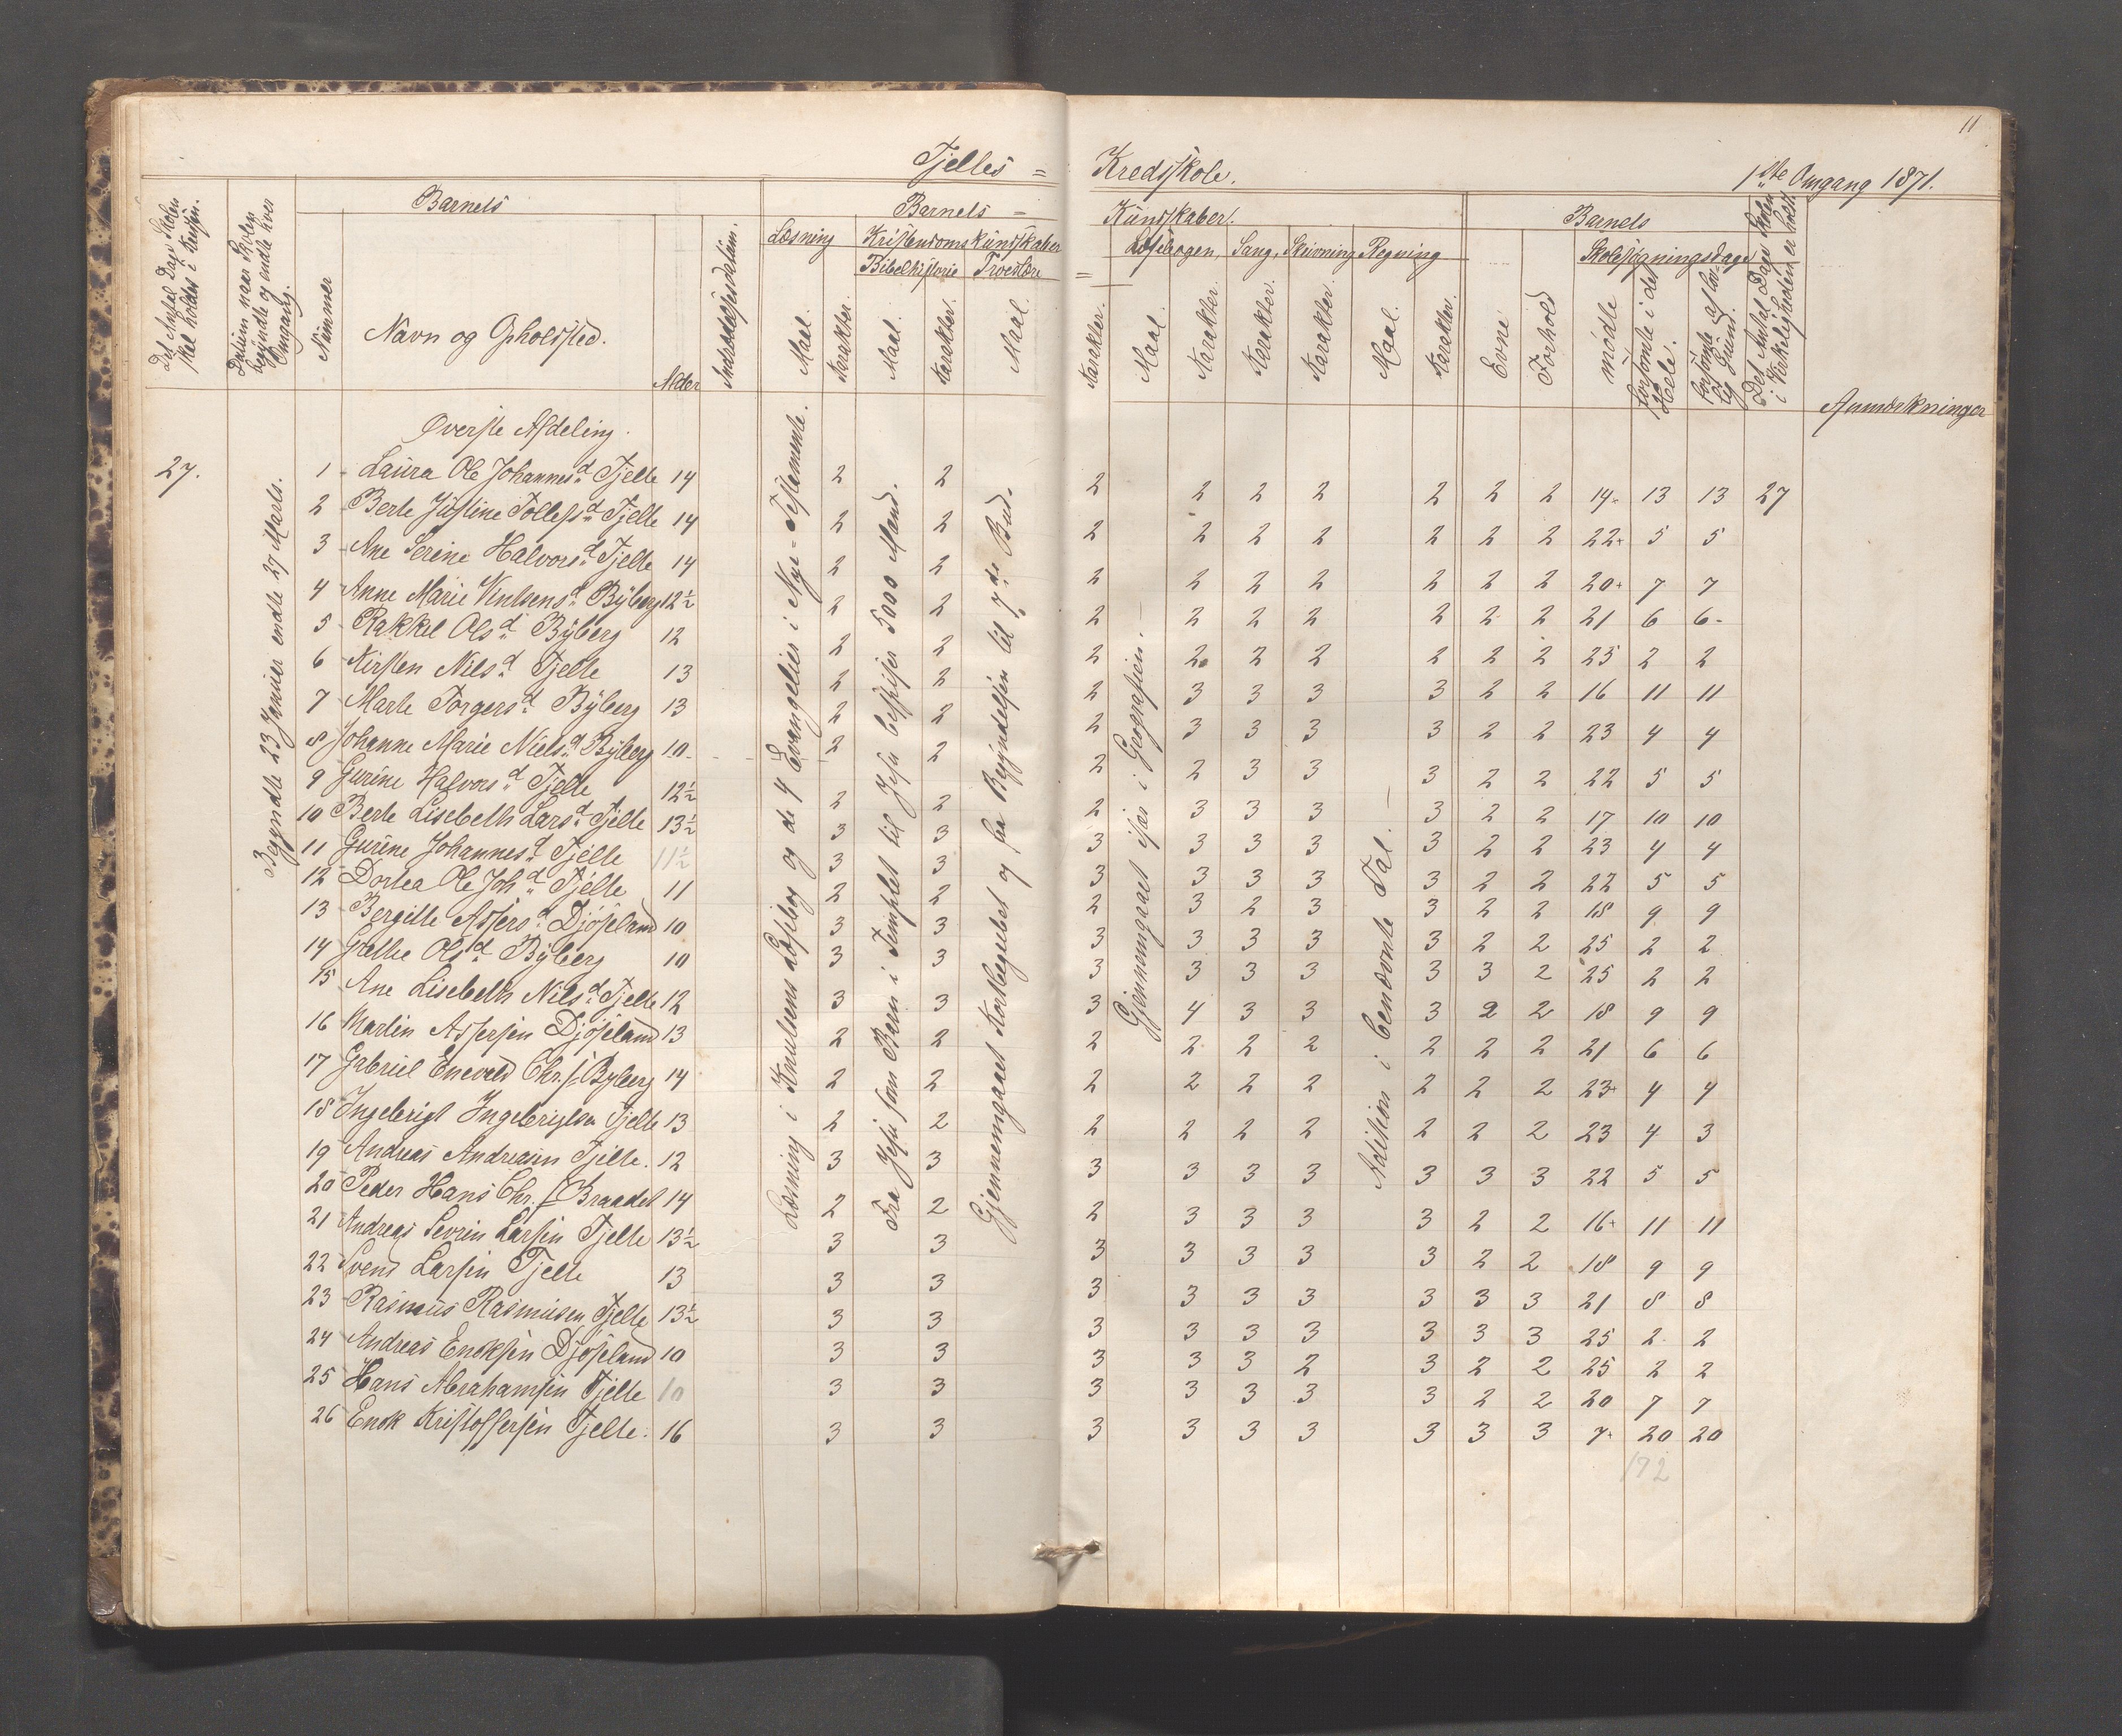 11
Tjelles = Kredsskole. 1ste Omgang 1871.
Det Antal Dage Skolen skal holdes i Kredsen.
Datum naar Skolen begyndte og endte hver Omgang.
Barnets
Nummer
Navn og Opholdssted.
Alder
Indtrædelsesdatum.
Barnets = Kundskaber.
Læsning
Maal.
Karakter.
Kristendomskundskaber
Bibelhistorie
Maal.
Karakter.
Troeslære
Maal.
Karakter.
Læsebogen.
Maal.
Karakter.
Sang.
Karakter.
Skrivning
Karakter.
Regning
Maal.
Karakter.
Barnets
Evne
Forhold
Skolesøgningsdage
mødte
forsømte i det Hele.
forsømte af lovlig Grund.
Det Antal Dage Skolen i Virkeligheden er holdt
Anmærkninger
Øverste Afdeling.
27.
Begyndte 23 Januar endte 27 Marts.
Læsning i Knutsens Læsebog og de 4 Evangelier i Nye-Testamente.
Fra Jesu som Barn i Templet til Jesu bespiser 5000 Mand.
Gjennemgaaet Kortbegrebet og fra Begyndelsen til 7de Bud.
Gjennemgaaet især i Geografien. —
Adition i benævnte Tal. —
1 Laura Ole Johannesd. Tjelle 14 2 2 2 2 2 2 2 2 2 14 13 13 27
2 Berte Justine Tollefsd. Tjelle 14 2 2 2 2 2 2 2 2 2 22 5 5
3 Ane Serine Halvorsd. Tjelle 14 2 2 2 2 2 2 2 2 2 20 7 7
4 Anne Marie Knutsensd. Byberg 12½ 2 2 2 2 2 2 2 2 2 21 6 6
5 Rakkel Olsd. Byberg 12 2 2 2 2 2 2 2 2 2 25 2 2
6 Kirsten Nilsd. Tjelle 13 2 2 2 3 3 3 3 2 2 16 11 11
7 Marte Torgersd. Byberg 13 2 2 2 3 3 3 3 2 2 23 4 4
8 Johanne Marie Nielsd. Byberg 10 2 2 2 2 3 3 3 2 2 22 5 5
9 Gurine Halvorsd. Tjelle 12½ 2 2 2 3 3 3 3 2 2 17 10 10
10 Berte Lisebeth Larsd. Tjelle 13½ 3 3 3 3 3 3 3 2 2 23 4 4
11 Gurine Johannesd. Tjelle 11½ 3 3 3 3 3 3 3 2 2 22 5 5
12 Dortea Ole Joh.d. Tjelle 11 2 2 2 3 2 3 3 2 2 18 9 9
13 Bergitte Assersd. Djøseland 10 3 3 3 3 3 3 3 2 2 25 2 2
14 Olsd. Byberg 10 3 3 3 3 3 3 3 3 2 25 2 2
15 Ane Lisebeth Nilsd. Tjelle 12 3 3 3 4 3 3 3 2 2 18 9 9
16 Martin Assersen Djøseland 13 2 2 2 2 2 2 2 2 2 21 6 6
17 Gabriel Enevald Chr.s. Byberg 14 2 2 2 2 2 2 2 2 2 23 4 4
18 Ingebrigt Ingebrigtsen Tjelle 13 2 2 2 2 2 2 2 2 2 23 4 3
19 Andreas Andreasen Tjelle. 12 3 3 3 3 3 3 3 3 3 22 5 5
20 Peder Hans Chr.s. Braadet 14 2 2 2 3 3 3 3 2 2 16 11 11
21 Andreas Sevrin Larsen Tjelle 13½ 3 3 3 3 3 3 3 2 2 18 9 9
22 Svend Larsen Tjelle 13 3 3 3 3 3 3 3 3 3 21 8 8
23 Rasmus Rasmusen Tjelle 13½ 3 3 3 3 3 3 3 3 3 25 2 2
24 Andreas Enoksen Djøseland 10 3 3 3 3 3 2 3 2 2 25 2 2
25 Hans Abrahamsen Tjelle 10 3 3 3 3 3 3 3 2 2 20 7 7
26 Enok Kristoffersen Tjelle. 16 3 3 3 3 3 3 3 3 3 7 20 20
172